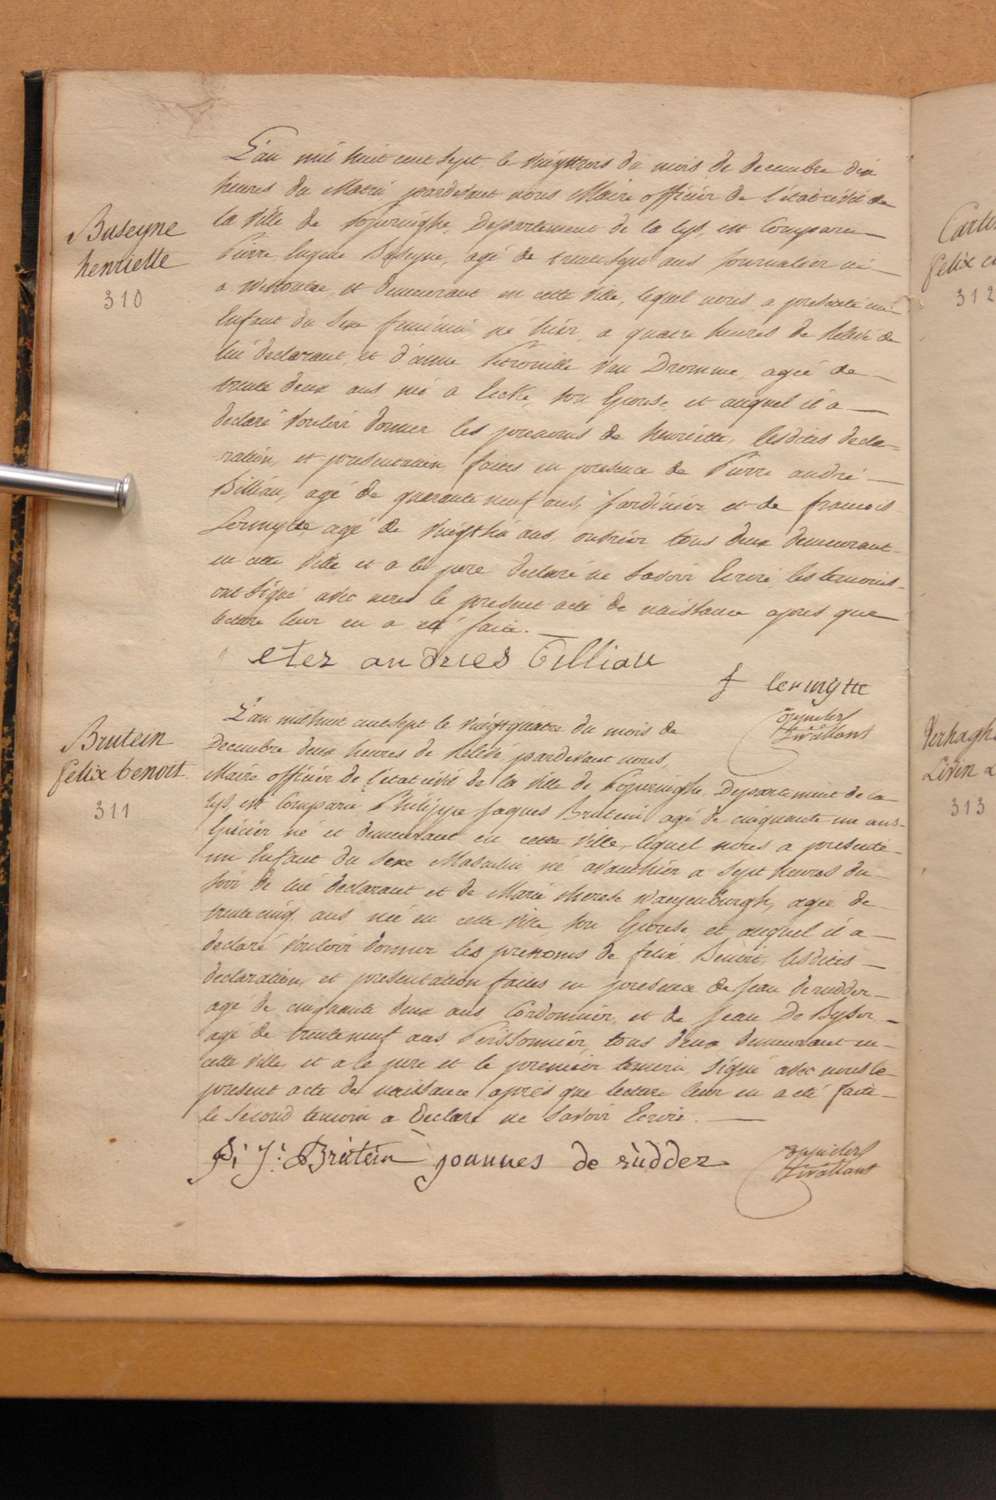 Buseyne
henriette
310
L'an mil huit cent sept le vingttrois du mois de decembre dix
heures du Matin pardevant nous Maire officier de l'état civil de
la ville de Poperinghe, Departement de la Lys, est Comparu
Pierre Eugene Buseyne, agé de trentesept ans Journalier né
a Westoutre, et demeurant en cette ville, lequel nous a presenté un
Enfant du Sexe feminin né hier, a quatre heures de relevé de
lui declarant et d'anne Petronille Van Dromme agée de
trente deux ans né a , son Epouse, et auquel il a
declaré vouloir donner les prenoms de henriette, lesdites decla-
ration, et presentation faites en presence de Pierre andré
Billiau, agé de quarante neuf ans, Jardinier et de francois
Lermytte agé de ans, ouvrier tous deux demeurant
en cette ville et a le pere declaré ne savoir Ecrire les temoins
ont signé avec nous le present acte de naissance apres que
lecture leur en a eté faite.
eter andries billiau
f lermytte
Brutein
felix benoit
311
L'an mil huit cent sept le vingtquatre du mois de
Decembre deux heures de relevé pardevant nous,
Maire officier de l'etat civil de la ville de Poperinghe, Departement de la
Lys, est Comparu Philippe Jaques Brutein agé de cinquante un ans
Epicier né et demeurant en cette ville, lequel nous a presenté
un Enfant du Sexe Masculin né avanthier a Sept heures du
soir de lui declarant et de Marie therese , agée de
trentecinq ans née en cette ville, son Epouse et auquel il a
declaré vouloir donner les prenoms de felix Benoit, lesdites
declaration, et presentation faites en presence de Jean derudder
agé de cinquante deux ans Cordonnier, et de Jean De
agé de trenteneuf ans Poissonnier tous deux demeurant en
cette ville, et a le pere et le premier temoin signé avec nous le
present acte de naissance après que lecture leur en a eté faite
le second temoin a Declaré ne savoir Ecrire.
P: J: Brutein joannes de rudder
Carlie
felix
312
Verhaghe
Livin
313